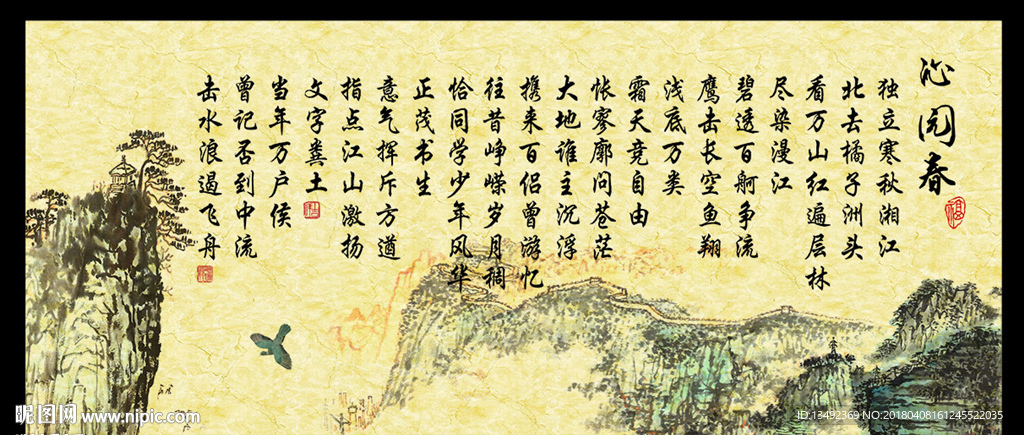 沁园春
独立寒秋湘江
北去橘子洲头
看万山红遍层林
尽染漫江
碧透百舸争流
鹰击长空鱼翔
浅底万类
霜天竞自由
怅寥廓问苍茫
大地谁主沉浮
携来百侣曾游忆
往昔峥嵘岁月稠
恰同学少年风华
正茂书生
意气挥斥方道
指点江山激扬
文字粪土
当年万户侯
曾记否到中流
击水浪遏飞舟
昵图网 www.nipic.com
ID:13492369 NO:20180408161245522035